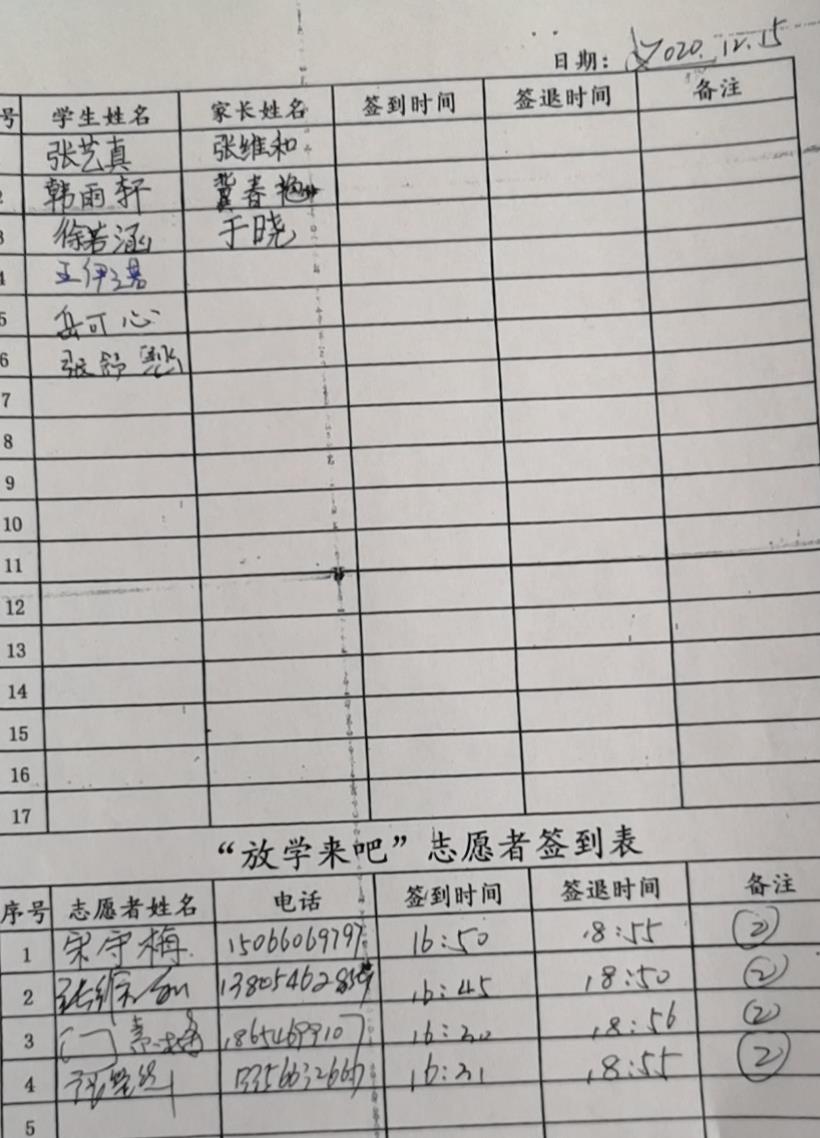 日期: 2020.12.15
号 学生姓名 家长姓名 签到时间 签退时间 备注
张艺真 张维和
2 韩雨轩 冀春艳
3 徐若涵 于晓
4 王伊诺
5 岳可心
6 张舒
7
8
9
10
11
12
13
14
15
16
17
“放学来吧”志愿者签到表
序号 志愿者姓名 电话 签到时间 签退时间 备注
1 宋守梅 15066069797 16:50 18:55 ②
2 16:45 18:50 ②
3 16:30 18:56 ②
4 16:31 18:55 ②
5